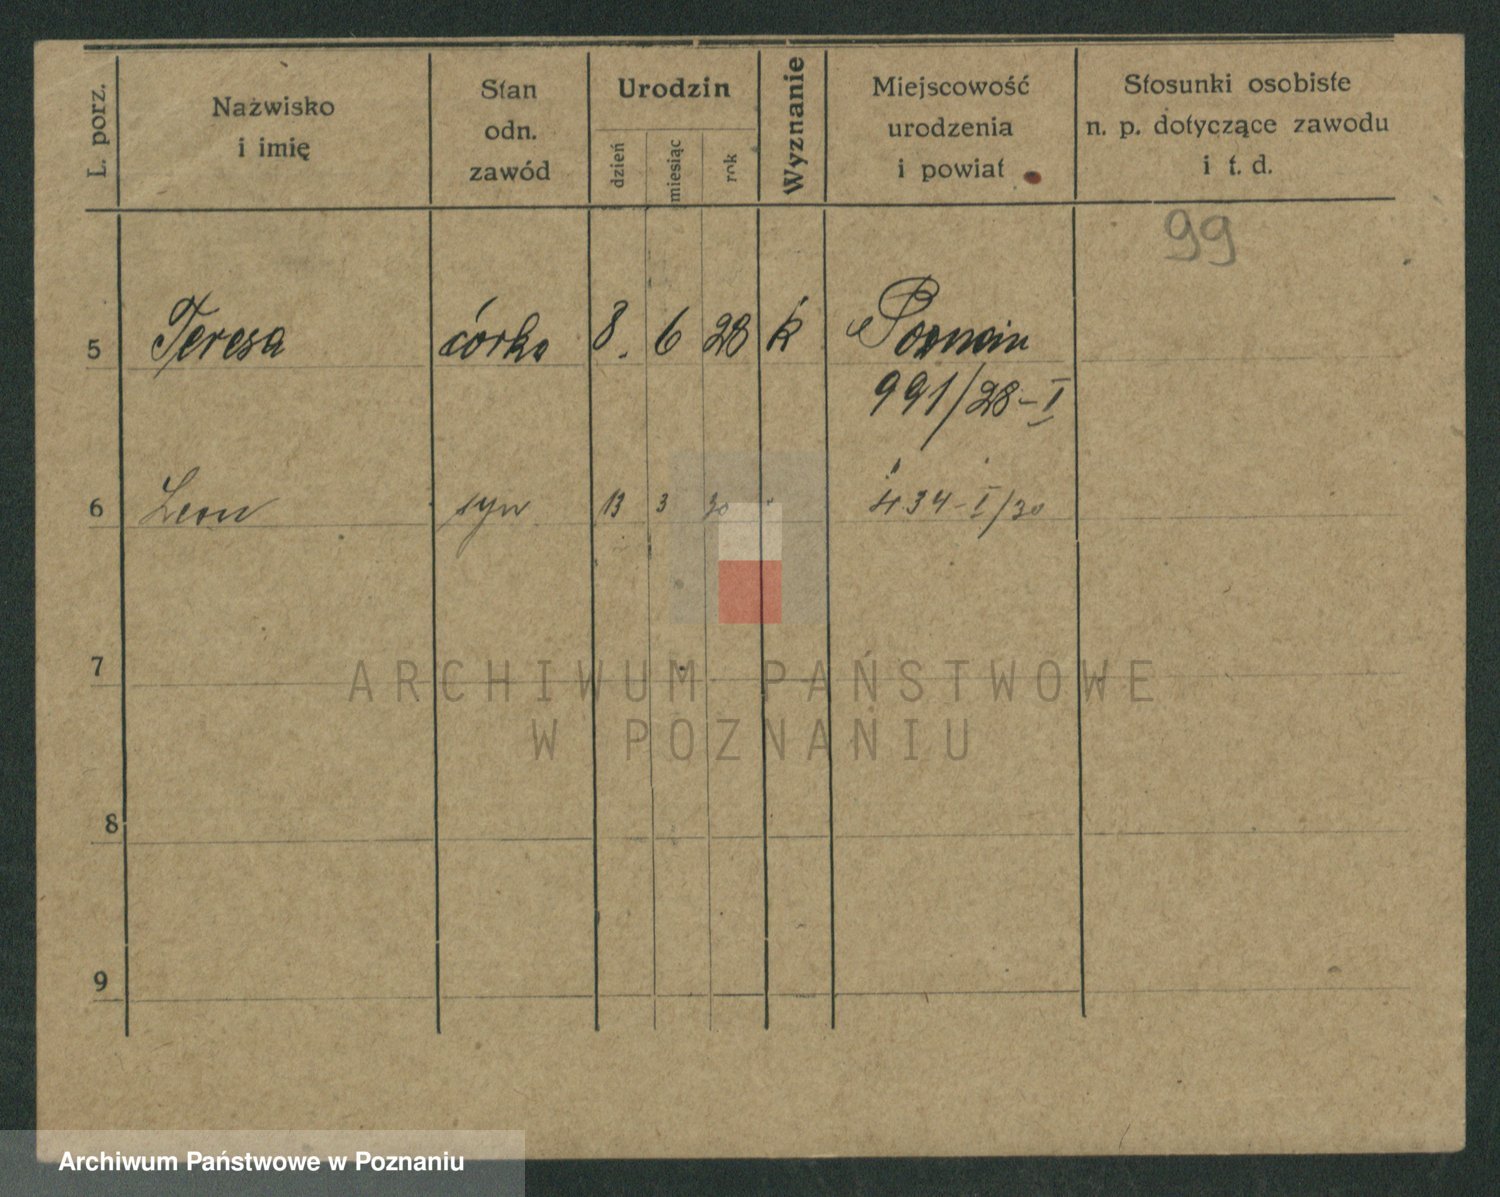 L. porz.
Nazwisko
i imię
Stan
odn.
zawód
Urodzin
dzień
miesiąc
rok
Wyznanie
Miejscowość
urodzenia
i powiat
Stosunki osobiste
n. p. dotyczące zawodu
i t. d.
99
5 Teresa córka 8. 6 28 k Poznań
991/28-I
6 Leon syn 13 3 30 434-I/30
7
8
9
ARCHIWUM PAŃSTWOWE
W POZNANIU
Archiwum Państwowe w Poznaniu